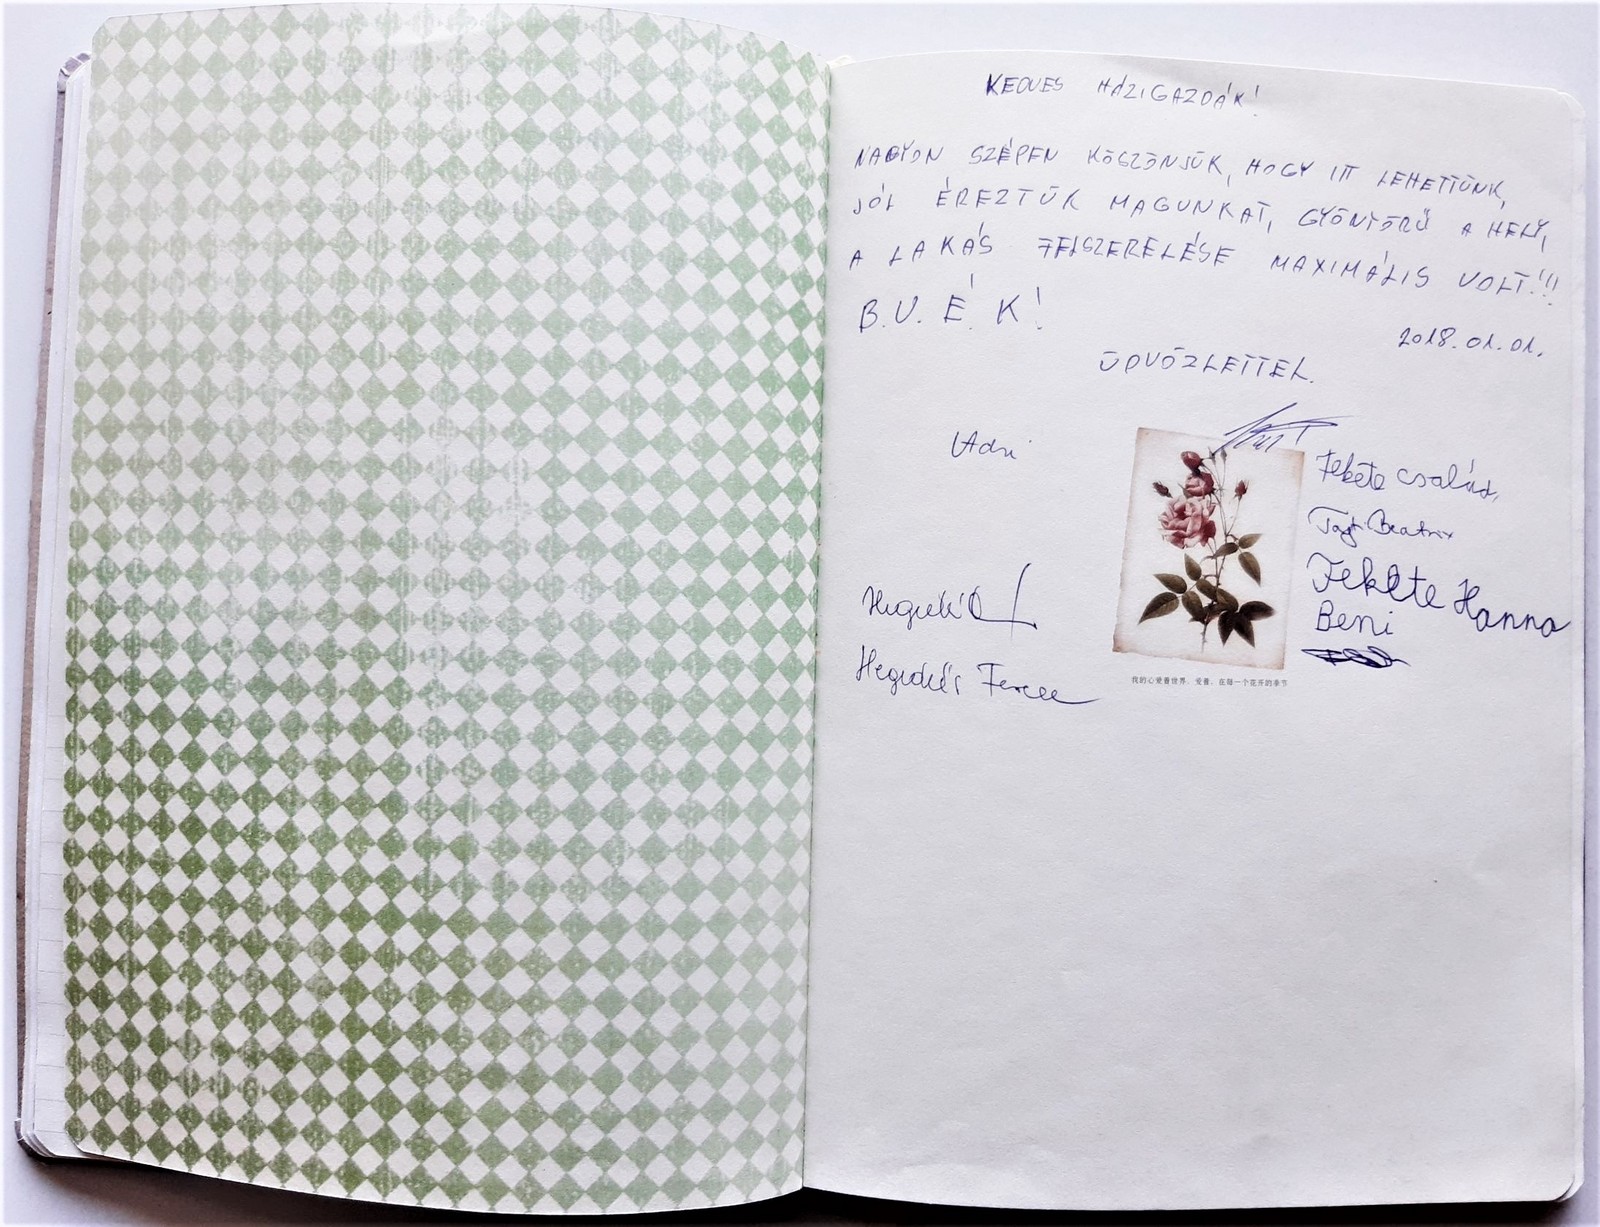 KEDVES HÁZIGAZDÁK!
NAGYON SZÉPEN KÖSZÖNJÜK, HOGY ITT LEHETTÜNK,
JÓL ÉREZTÜK MAGUNKAT, GYÖNYÖRŰ A HELY,
A LAKÁS FELSZERELÉSE MAXIMÁLIS VOLT!!!
B.U.É.K!
2018.01.01.
ÜDVÖZLETTEL.
Adri
Fekete család,
Beatrix
Fekete Hanna
Beni
Hegedűs Ferenc
我的心爱着世界，爱着，在每一个花开的季节